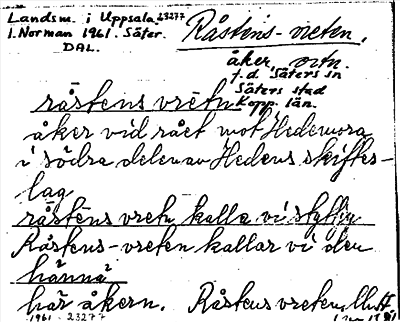 Landsm. i Uppsala. 23277
I. Norman 1961. Säter.
DAL.
Råstens-vreten.
åker, ortn.
f.d. Säters sn
Säters stad
Kopp. län.
råstens vretn
åker vid rået mot Hedemora
i södra delen av Hedens skiftes-
lag
råstens vretn kalla vi
Råstens-vreten kallar vi den
hànna
här åkern. Råstensvreten,
1961 23277